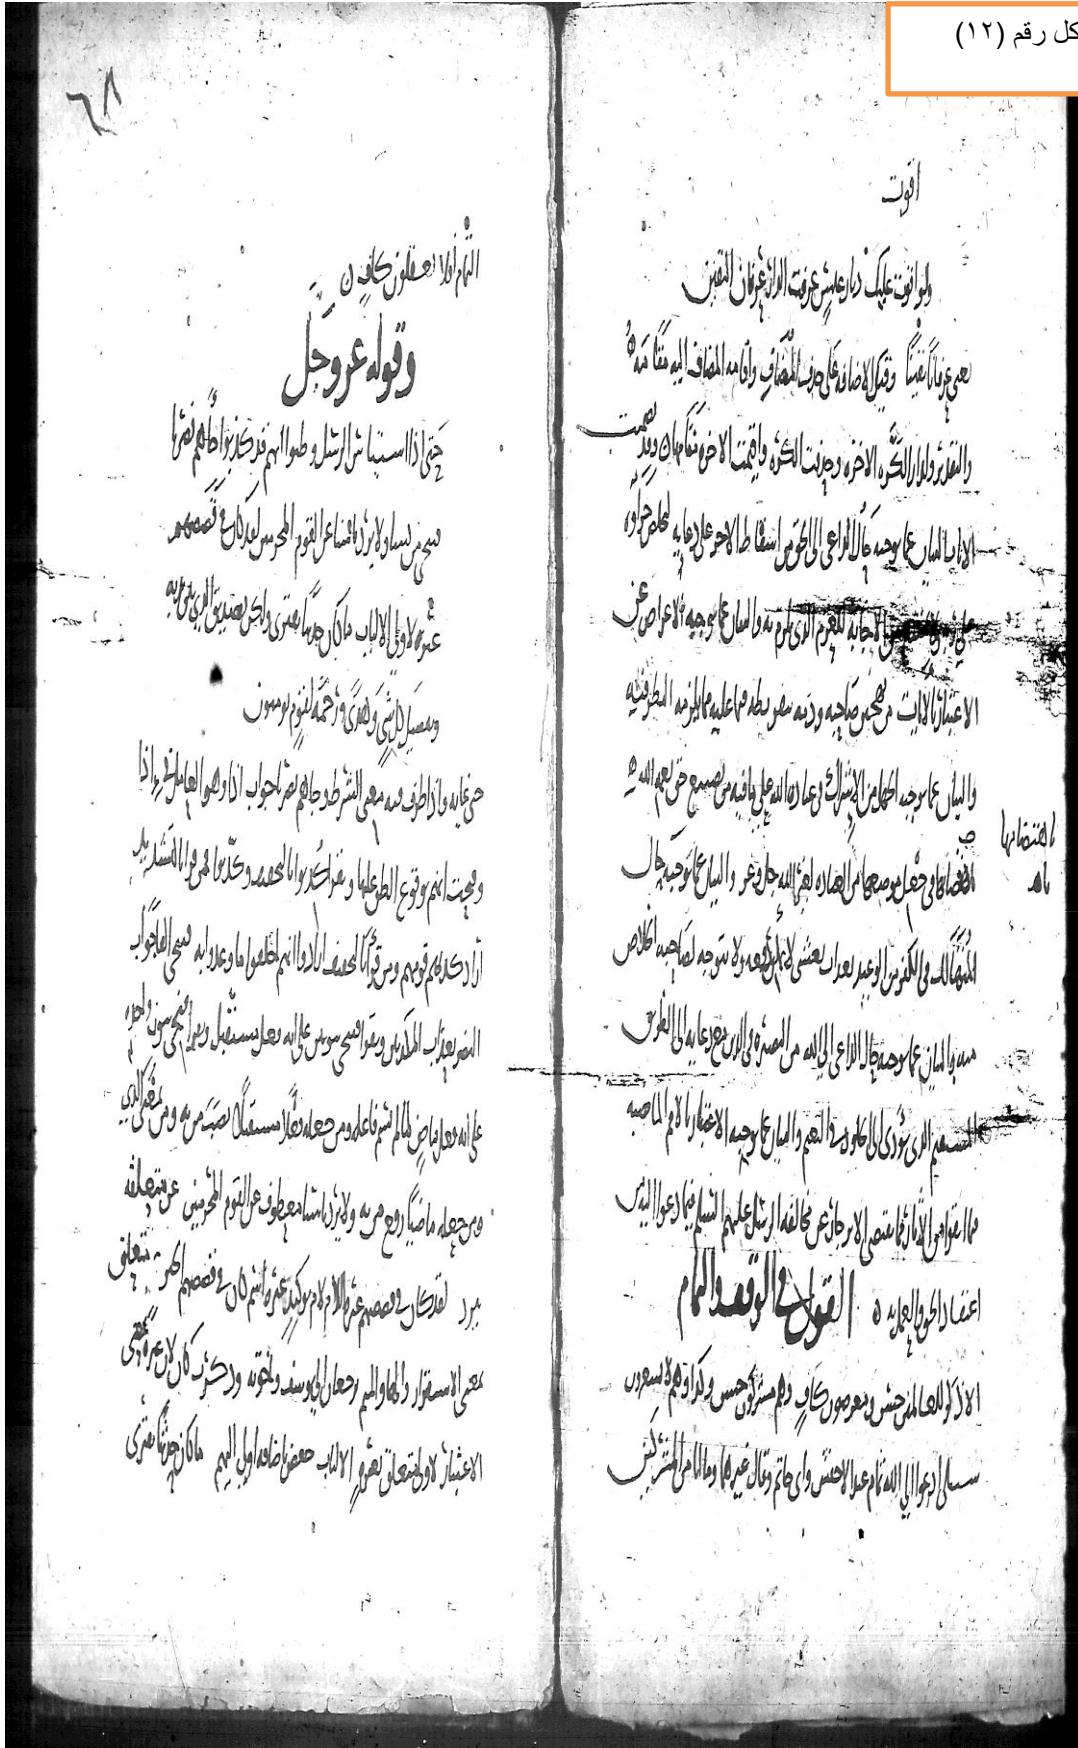 كل رقم (١٢)
اقوت
ولو اقوت عليك ديار عبس عرفت الذل عرفان اليقين
يعني عرفانا يقينا وقيل الاضافه على حذف المضاف واقامه المضاف اليه مقامه
والتقدير ولدار الكره الاخره وحذفت الكره واقيمت الاخره مقامها وقد تضمنت
الايات البيان عما يوجبه حال الداعي الى الحق من اسقاط الاجر على دعايه
الاجابه للغرم الذي يلزم به والبيان عما يوجبه الاعراض عن
الاعتبار بالايات من صاحبه وذمه فيما عليه مما يلزمه
والبيان عما يوجبه الجهل من الاشراك في عباده الله على ما فيه من تضييع حق نعم الله
في موضعها من العباده لغير الله جل وعز والبيان عما يوجبه حال
في الكفر من الوعيد بعذاب يغشى لا يمكن دفعه ولا يتوجه لصاحبه الخلاص
منه والبيان عما يوجبه حال الداعي الى الله من البصيره في الدين مع دعايه الى الطريق
المستقيم الذي يؤدي الى الخلود في النعيم والبيان عما يوجبه الاعتبار بالامم الماضيه
فيما ابقوا من الاثار مما يقتضي الازدجار عن مخالفه الرسل عليهم السلم فيما دعوا اليه من
اعتقاد الحق والعمل به ٥ القول في الوقف والتمام
الا ذكر للعالمين حسن ومعرضون كاف وهم مشركون حسن وكذا وهم لا يشعرون
سبيلي ادعوا الى الله تمام عند الاخفش وابي حاتم وقال غيرهما وما انا من المشركين
باقتضايها
٦٨
التمام افلا تعقلون كاف ن
وقوله عز وجل
حتى اذا استياس الرسل وظنوا انهم قد كذبوا جاهم نصرنا
فنجي من نشا ولا يرد باسنا عن القوم المجرمين لقد كان في قصصهم
عبره لاولي الالباب ما كان حديثا يفترى ولكن تصديق الذي بين يديه
وتفصيل كل شي وهدى ورحمه لقوم يومنون
حتى غايه واذا ظرف فيه معنى الشرط وجاهم نصرنا جواب اذا وهو العامل في اذا
وفتحت انهم لوقوع الظن عليها ويقرا كذبوا بالتخفيف وكذبوا فمن قرا بالتشديد
اراد كذبهم قومهم ومن قرا بالتخفيف اراد انهم اخلفوا ما وعدوا به فنجي
النصر بعذاب المكذبين ويقرا فننجي بنونين على انه فعل مستقبل ويقرا فنجي بنون واحده
على انه فعل ماض لما لم يسم فاعله ومن جعله فعلا مستقبلا نصب من به
ومن جعله ماضيا رفع من به ولا يرد باسنا معطوف عن القوم المجرمين عن متعلقه
بيرد لقد كان في قصصهم عبره اللام لام توكيد عبره اسم كان في قصصهم الخبر متعلق
بمعنى الاستقرار والها والميم يرجعان الى يوسف واخوته وذكرت كان لان عبره بمعنى
الاعتبار لاولي متعلق بعبره الالباب خفض باضافه اولي اليهم ما كان حديثا يفترى